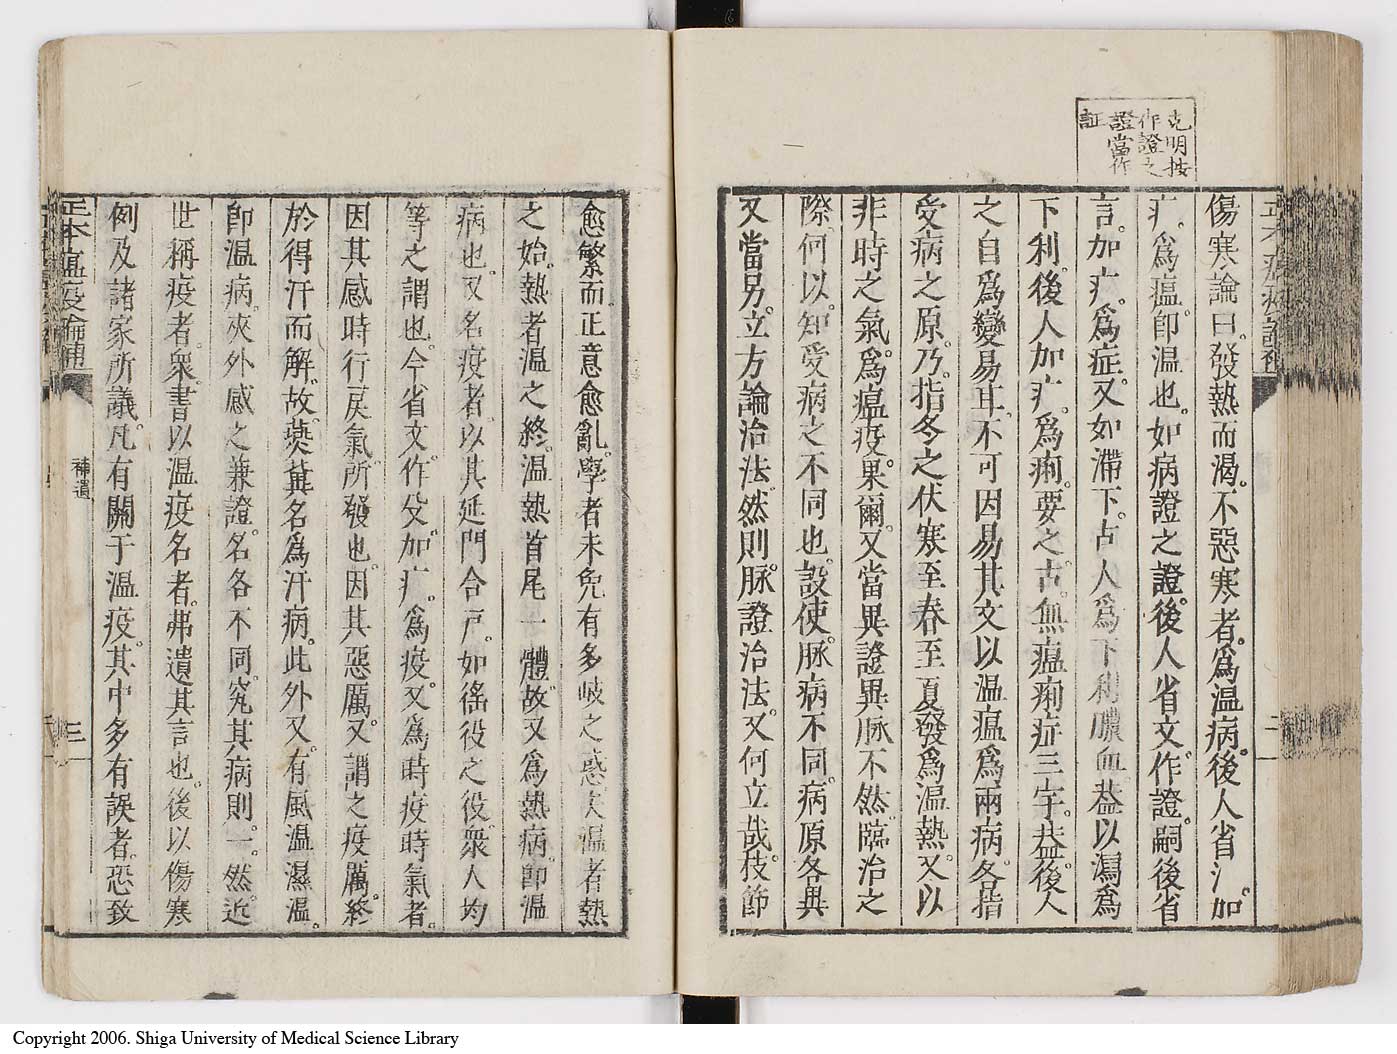 克明按
作證之
證當作
証
傷寒論曰。發熱而渴。不惡寒者。爲温病。後人省氵。加
疒。爲瘟。卽温也。如病證之證。後人省文。作證。嗣後省
言。加疒。爲症。又如滯下。古人爲下利膿血。葢以瀉爲
下利。後人加疒。爲痢。要之。古。無瘟痢症三字。葢。後人
之自爲變易耳。不可因易其文以温瘟爲兩病。各指
受病之原。乃。指冬之伏寒至春至夏發爲温熱。又以
非時之氣。爲瘟疫。果。爾。又當異證異脉不然。臨治之
際。何以。知受病之不同也。設使。脉病不同。病原各異
又當另。立方論治法。然則。脉證治法。又何立哉。枝節
愈繁而正意愈亂。學者未免有多岐之惑矣温者熱
之始。熱者温之終。温熱首尾一體。故又爲熱病。卽温
病也。又名疫者。以其延門合戸。如徭役之役。衆人均
等之謂也。今省文。作殳。加疒。爲疫。又爲時疫時氣者。
因其感時行戻氣。所發也。因其惡厲。又謂之疫厲。終
於得汗而解。故燕冀名爲汗病。此外又有風温濕温。
卽温病。夾外感之兼證。名各不同。究其病則一。然近
世稱疫者。衆。書以温疫名者。弗遺其言也。後以傷寒
例及諸家所議。凡。有關于温疫。其中多有誤者。恐致
正本瘟疫論補
補遺
三